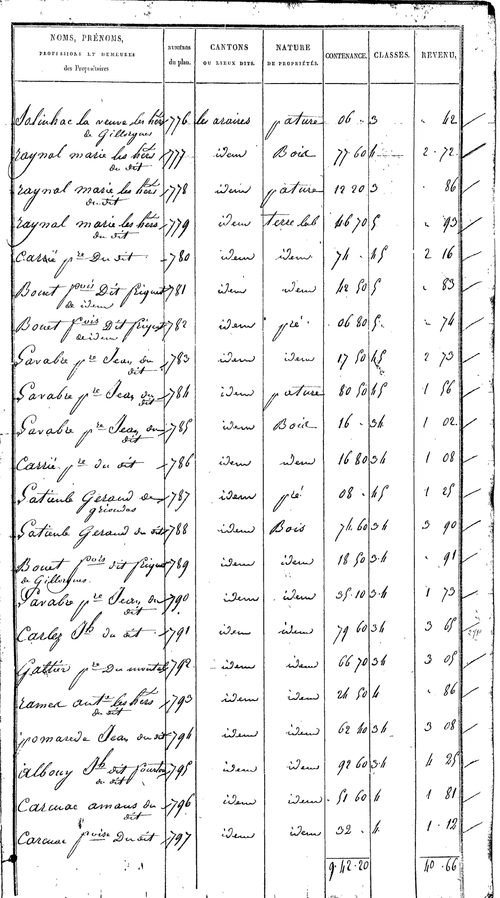 NOMS, PRÉNOMS, PROFESSIONS ET DEMEURES des Propriétaires | NUMÉROS du plan. | CANTONS OU LIEUX DITS. | NATURE DE PROPRIÉTÉS. | CONTENANCE. | CLASSES. | REVENU,
Salinhac la veuve les hers de Gillorgues 776 les araires pature 06 - 3 - 42
raynal marie les hers du dit 777 idem Bois 77 60 4 2 - 72
raynal marie les hers du dit 778 idem pature 12 20 3 - 86
raynal marie les hers du dit 779 idem terre lab 46 70 5 - 93
Carrié pre Du dit 780 idem idem 74 - 45 2 16
Bouet pois Dit friquet de idem 781 idem idem 42 50 5 - 83
Bouet pois Dit friquet de idem 782 idem pré 06 80 5 - 74
Gavabre pre Jean du dit 783 idem idem 17 50 45 2 73
Gavabre pre Jean du dit 784 idem pature 80 50 45 1 56
Gavabre pre Jean du dit 785 idem Bois 16 - 34 1 02
Carrié pre du dit 786 idem idem 16 80 34 1 08
Geraud de 787 idem pré 08 - 45 1 25
Geraud du dit 788 idem Bois 74 60 34 3 90
Bouet pois dit friquet de Gillorgues 789 idem idem 18 50 34 - 91
Gavabre pre Jean du dit 790 idem idem 35 10 34 1 73
Carlez Jh du dit 791 idem idem 79 60 34 3 65
Galtier pre Du 792 idem idem 66 70 34 3 05
ramex ante les hers du dit 793 idem idem 24 50 4 - 86
pomarede Jean du dit 794 idem idem 62 40 34 3 08
albouy Jh dit du dit 795 idem idem 92 60 34 4 25
Carcuac amans du dit 796 idem idem 51 60 4 1 81
Carcuac pois Du dit 797 idem idem 32 - 4 1 - 12
9 - 42 - 20 40 - 66